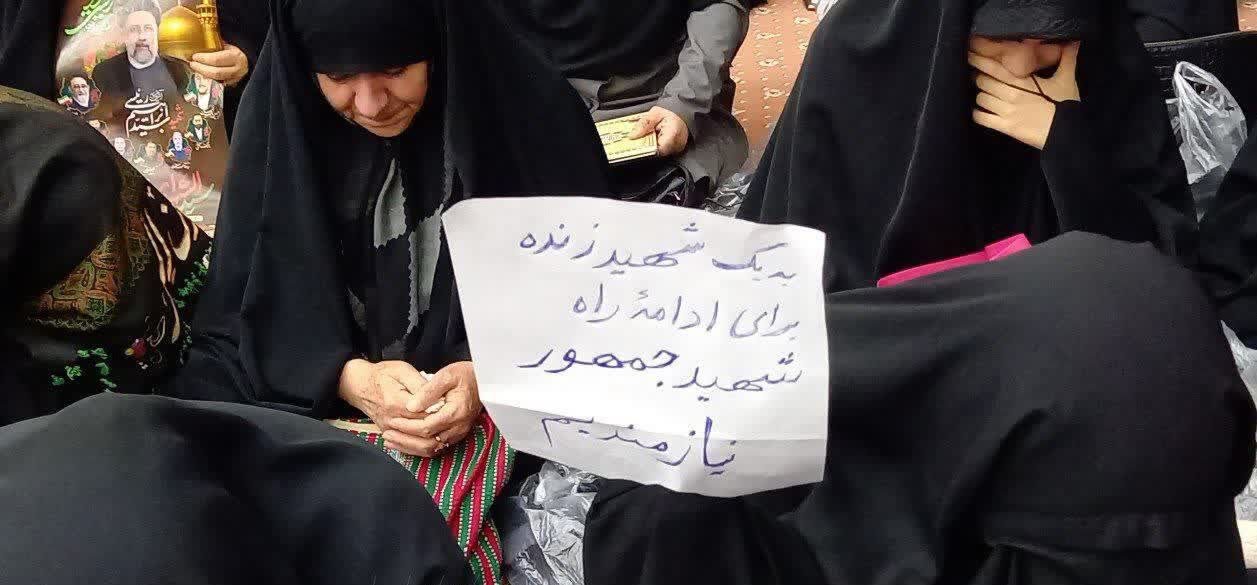 به یک شهید زنده
برای ادامهٔ راه
شهید جمهور
نیازمندیم